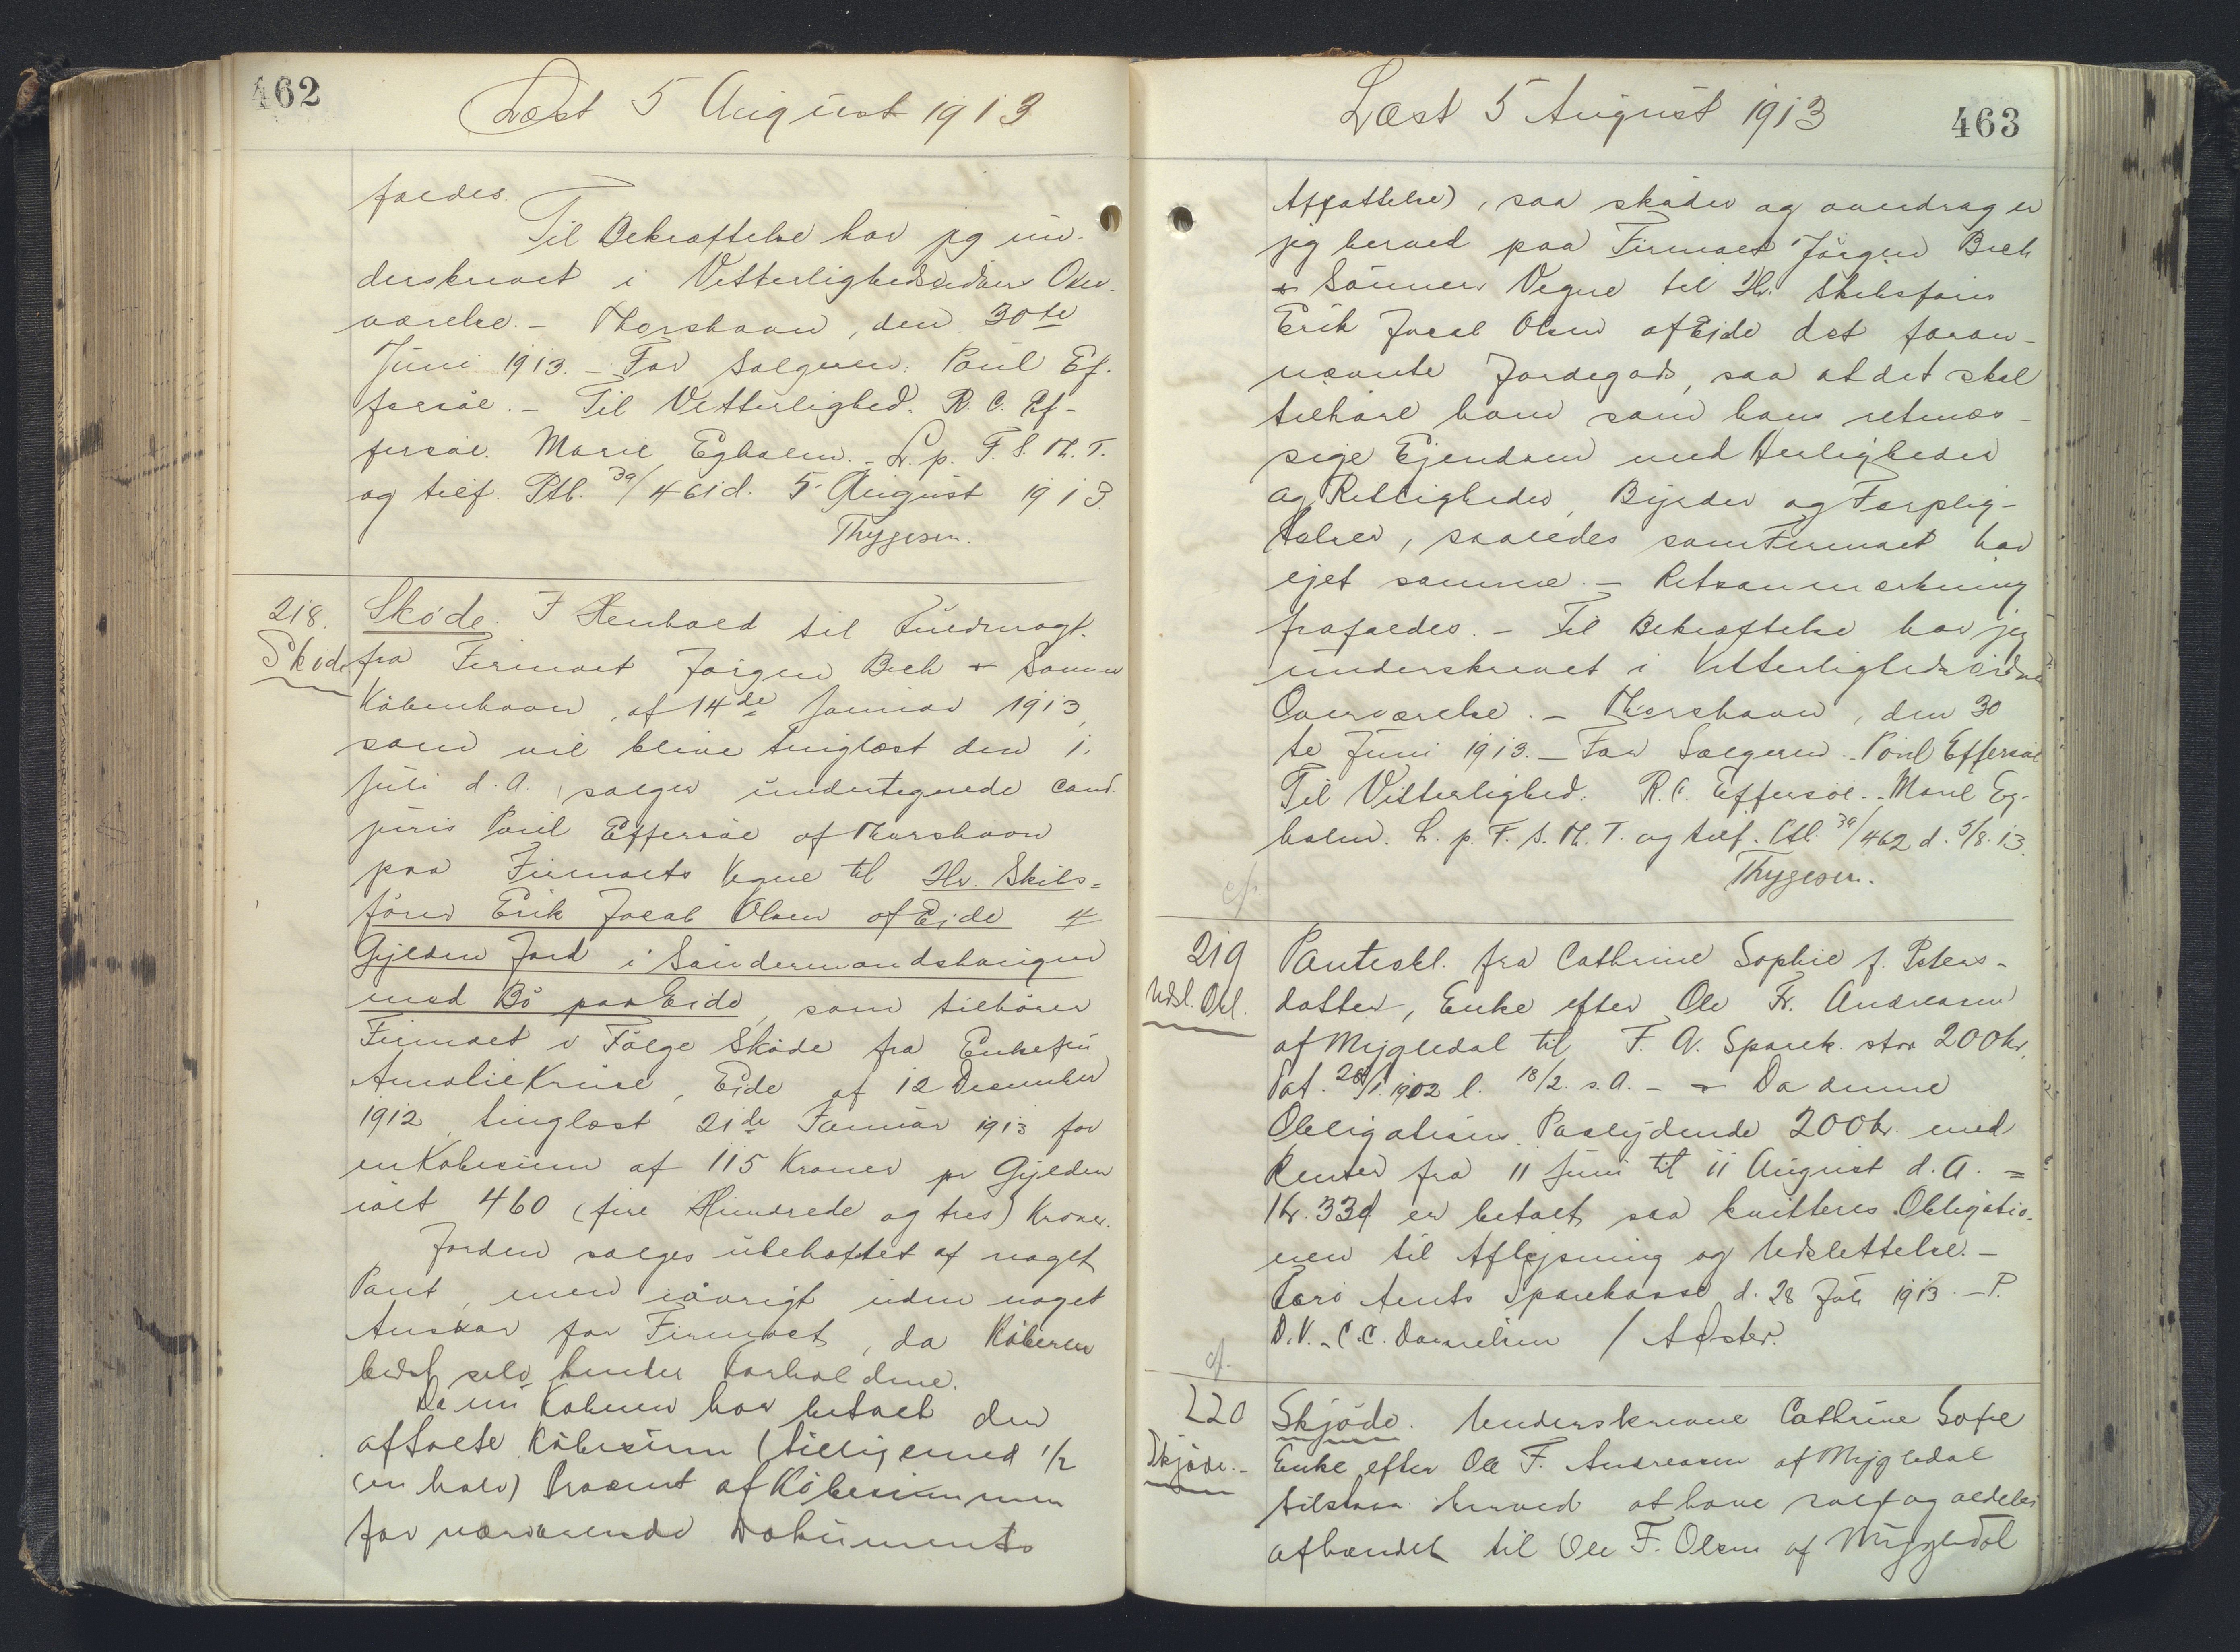 462
Læst 5 August 1913
faldes.
Til Bekræftelse har jeg un-
derskrevet i Vitterlighedsvidners Over-
værelse. - Thorshavn, den 30te
Juni 1913. - For Sælgeren: Poul Ef-
fersøe. - Til Vitterlighed. R. C. Ef-
fersøe. Marie Egholm. - L. p. F. S. Th. T.
og tilf. Ptb. 39/461 d. 5 August 1913.
Thygesen.
218.
Skøde
Skøde. I Henhold til Fuldmagt
fra Firmaet Jørgen Bech + Sønner
København, af 14de Januar 1913,
som vil blive tinglæst den 1.
Juli d. A., sælger undertegnede cand.
juris Poul Effersøe af Thorshavn
paa Firmaets Vegne til Hr. Skibs-
fører Erik Jacob Olsen af Eide 4
Gylden Jord i Søndermandshaugen
med Bø paa Eide, som tilhører
Firmaet i Følge Skøde fra Enkefru
Amalie Kruse, Eide af 12 December
1912, tinglæst 21de Januar 1913 for
en Købesum af 115 Kroner pr Gylden
ialt 460 (fire Hundrede og tres) Kroner.
Jorden sælges ubehæftet af noget
Pant, men iøvrigt uden noget
Ansvar for Firmaet, da Køberen
bedst selv kender Forholdene.
Da nu Køberen har betalt den
aftalte Købesum (tilligemed 1/2
(en halv) Procent af Købesummen
for nærværende Dokuments
Læst 5 August 1913
463
Affattelse), saa skøder og overdrager
jeg herved paa Firmaet Jørgen Bech
+ Sønners Vegne til Hr. Skibsfører
Erik Jacob Olsen af Eide det foran-
nævnte Jordegods, saa at det skal
tilhøre ham som hans retmæs-
sige Ejendom med Herligheder
og Rettigheder, Byrder og Forplig-
telser, saaledes som Firmaet har
ejet samme. - Retsanmærkning
frafaldes. - Til Bekræftelse har jeg
underskrevet i Vitterlighedsvidners
Overværelse. - Thorshavn, den 30
te Juni 1913. - For Sælgeren. - Poul Effersøe
Til Vitterlighed. R. C. Effersøe. - Marie Eg-
holm. L. p. F. S. Th. T. og tilf. Ptb. 39/462 d. 5/8. 13.
Thygesen.
cf.
219
Udsl. Obl.
Panteobl. fra Cathrine Sophie f. Peters-
datter, Enke efter Ole Fr. Andreasen
af Mygledal til F. A. Sparek. stor 200 kr.
Dat. 28/1 1902 l. 18/2. s. A. - Da denne
Obligations Paalydende 200 kr. med
Renter fra 11 Juni til 11 August d. A. =
1 kr. 33 Ø er betalt, saa kvitteres Obligatio-
nen til Aflysning og Udslettelse. -
Færø Amts Sparekasse d. 28 Juli 1913. - P.
D. V. - C. C. Danielsen / A Øster.
cf.
220
Skjøde. -
Skjøde. Underskrevne Cathrine Sofie
Enke efter Ole F. Andreasen af Mygledal
tilstaar herved at have solgt og aldeles
afhændet til Ole F. Olsen af Mygledal